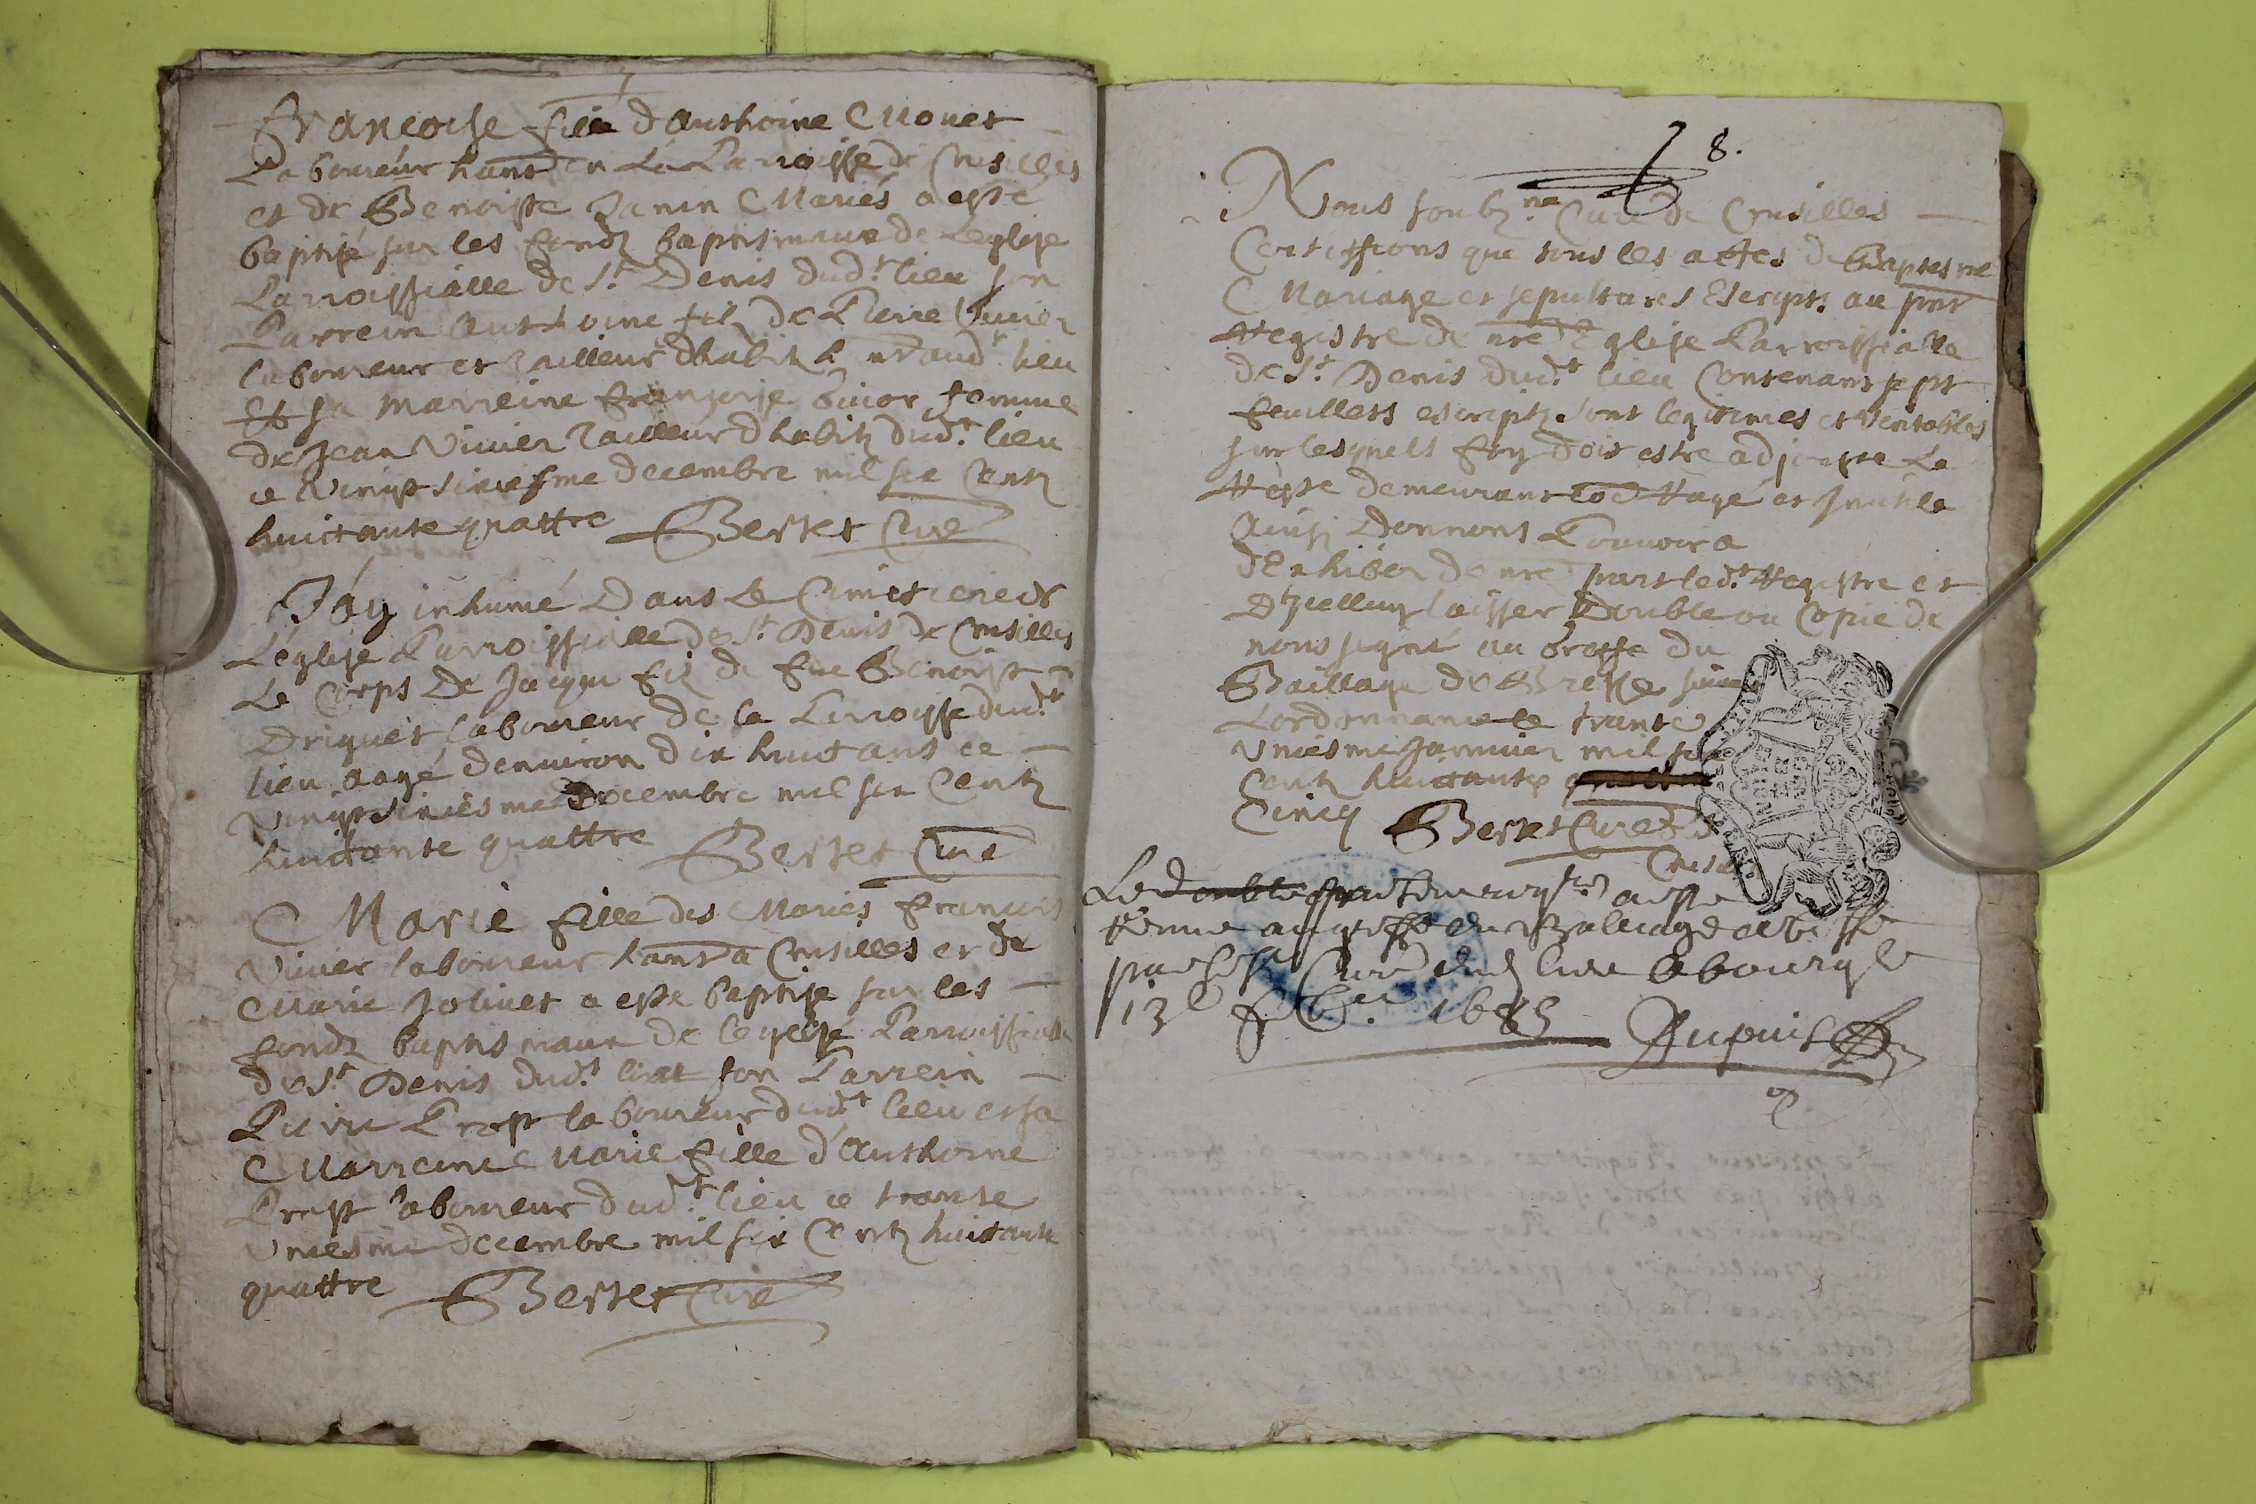 Francoise fille d'Anthoine Mouet
Laboureur hant en La Parroisse de Crusilles
et de Benoiste Janin Mariés a este
baptisé sur les fondz baptismaux de Leglise
Parroissialle de St. Denis dudt. lieu son
Parrein Anthoine filz de Pierre Vivier
laboureur et tailleur dhabitz audt. lieu
Et sa marreine françoise femme
de Jean Vivier Tailleur dhabitz dudt. lieu
ce Vingt sixiesme decembre mil six Centz
huictante quattre Berset Curé
J'ay inhumé Dans Le Cimetiere de
L'église Parroissialle de St Denis de Crusilles
Le Corps De Jaque filz de feu Benoist
Driguet laboureur de la Parroisse dudt
lieu aagé denviron dix huict ans ce
Vingt sixiesme Decembre mil six Centz
huictante quattre Berset Curé
Marie fille des Mariés francois
Vivier laboureur hant a Crusilles et de
Marie Jolivet a este baptisé sur les
fondz baptismaux de leglise Parroissialle
de St Denis dudt. lieu son Parrein
Pierre Prost laboureur dudt lieu et sa
Marreine Marie fille d'Anthoine
Prost laboureur dudt. lieu ce trante
Uniesme decembre mil six Centz huictante
quattre Berset Curé
8.
Nous soubzne Curé de Crusilles
Certiffions que tous les actes de Baptesme
Mariage et sepultures Escriptz au pnt
Registre de nre Eglise Parroissialle
de St. Denis dudt lieu Contenant sept
feuillets escriptz sont legitimes et veritables
sur lesquels foy doit estre adjoustée Le
Reste demeurant Rayé et Inutile
Ainsi Donnons Pouvoir a
dExhiber de nre part ledt. Registre et
D'Icelluy laisser Double ou Copie de
nous signé au Greffe du
Baillage de Bresse
Lordonnance le trante
Uniesme Janvier mil
Centz huictante
Cincq Berset Curé
Le a esté
au greffe du Balliage de Bresse
par Curé dud lieu a bourg le
13e 1685 Dupuis